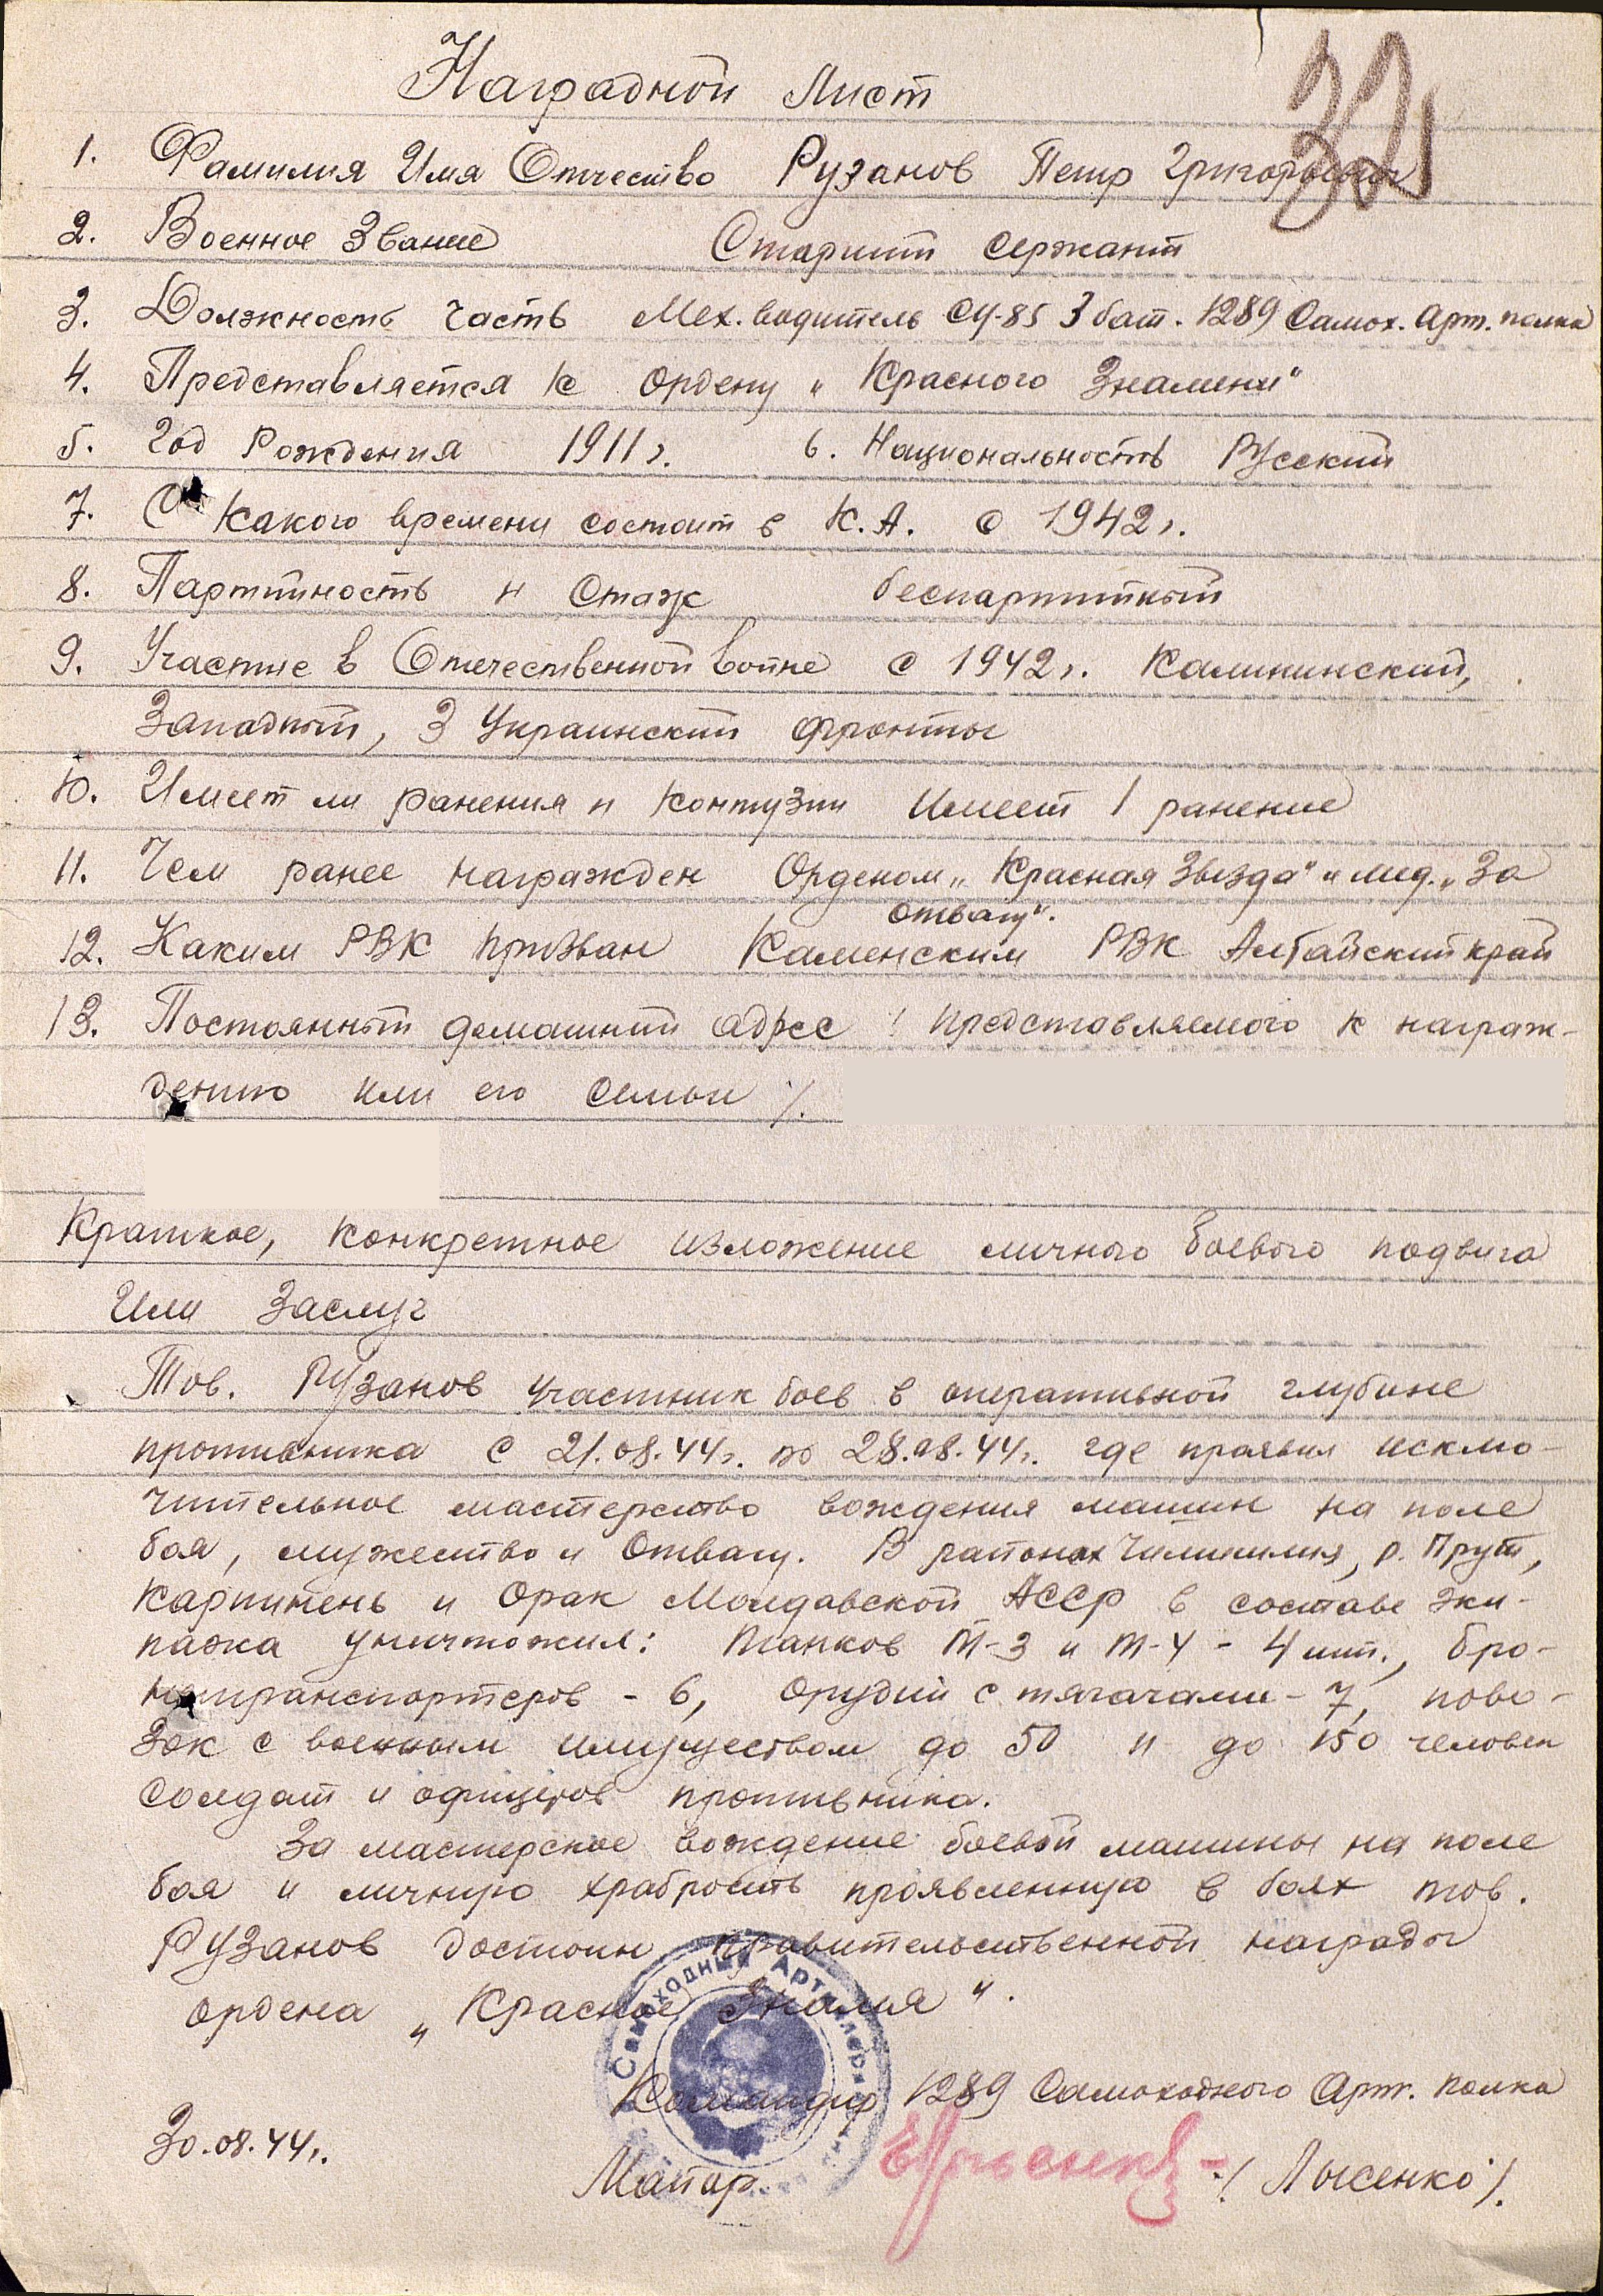 Наградной Лист
32
1. Фамилия Имя Отчество Рузанов Петр Григорьевич
2. Военное Звание Старший сержант
3. Должность часть Мех. водитель СУ-85 3 бат. 1289 Самох. Арт. полка
4. Представляется к ордену „Красного Знамени"
5. Год Рождения 1911г. 6. Национальность Русский
7. С какого времени состоит в К.А. с 1942г.
8. Партийность и стаж беспартийный
9. Участие в Отечественной войне с 1942г. Калининский,
Западный, 3 Украинский фронты
10. Имеет ли ранения и контузии Имеет 1 ранение
11. Чем ранее награжден Орденом „Красная Звезда" и мед. „За
отвагу".
12. Каким РВК призван Каменским РВК Алтайский край
13. Постоянный домашний адрес / представляемого к награж-
дению или его семьи /.
Краткое, конкретное изложение личного боевого подвига
Или Заслуг
Тов. Рузанов участник боев в оперативной глубине
противника с 21.08.44г. по 28.08.44г. где проявил исклю-
чительное мастерство вождения машин на поле
боя, мужество и отвагу. В районах р. Прут,
Карпинень и Орак Молдавской АССР в составе эки-
пажа уничтожил: танков Т-3 и Т-4 - 4 шт., бро-
нетранспортеров - 6, орудий с тягачами - 7, пово-
зок с военным имуществом до 50 и до 150 человек
солдат и офицеров противника.
За мастерское вождение боевой машины на поле
боя и личную храбрость проявленную в боях тов.
Рузанов достоин правительственной награды
ордена „Красное Знамя".
Самоходный Артиллерийский
Командир 1289 Самоходного Арт. полка
30.08.44г.
Майор /Лысенко/.